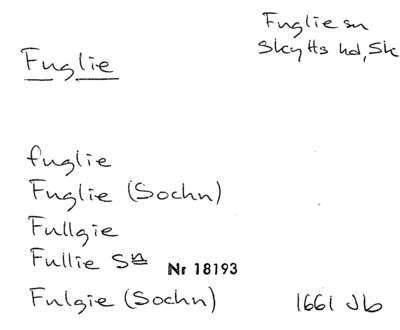 Fuglie sn
Skytts hd, Sk
Fuglie
fuglie
Fuglie (Sochn)
Fullgie
Fullie Sn
Nr 18193
Fulgie (Sochn) 1661 Jb